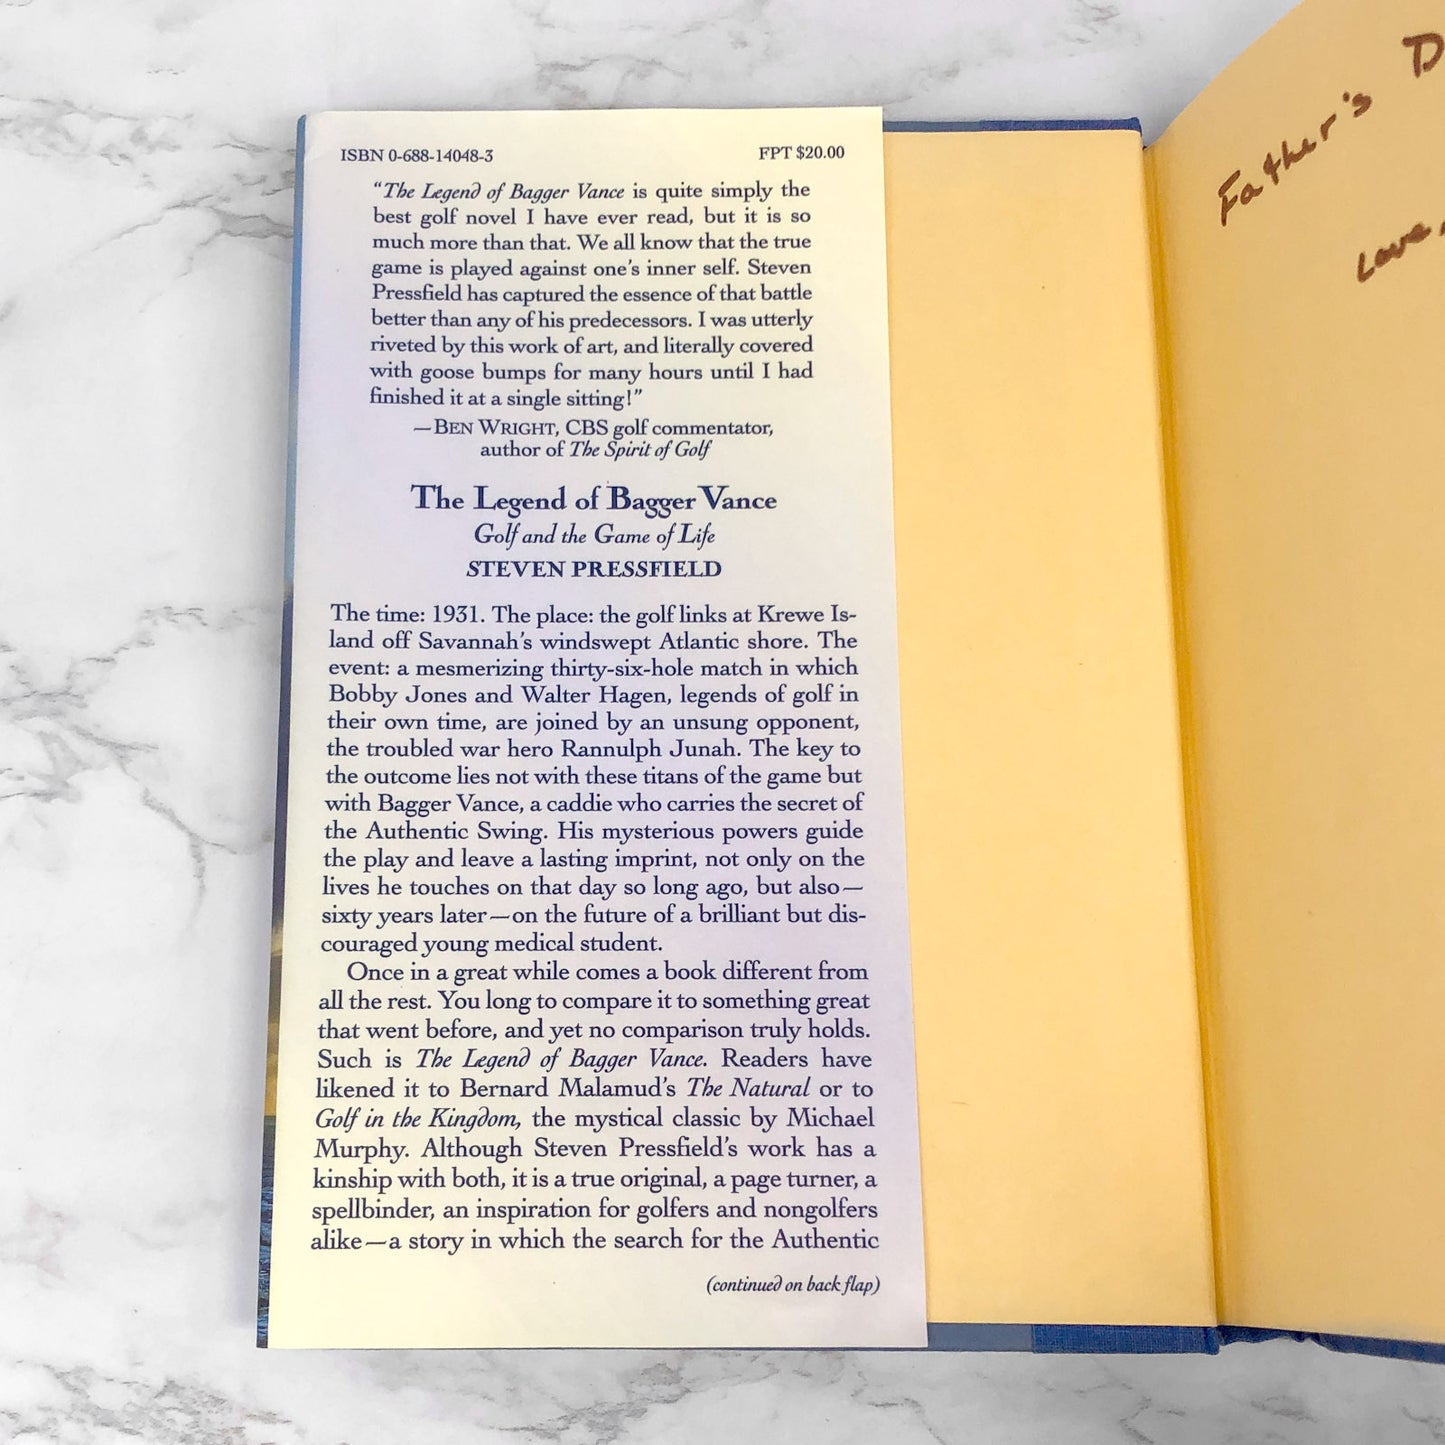 ISBN 0-688-14048-3
FPT $20.00
“The Legend of Bagger Vance is quite simply the
best golf novel I have ever read, but it is so
much more than that. We all know that the true
game is played against one’s inner self. Steven
Pressfield has captured the essence of that battle
better than any of his predecessors. I was utterly
riveted by this work of art, and literally covered
with goose bumps for many hours until I had
finished it at a single sitting!”
—BEN WRIGHT, CBS golf commentator,
author of The Spirit of Golf
The Legend of Bagger Vance
Golf and the Game of Life
STEVEN PRESSFIELD
The time: 1931. The place: the golf links at Krewe Is-
land off Savannah’s windswept Atlantic shore. The
event: a mesmerizing thirty-six-hole match in which
Bobby Jones and Walter Hagen, legends of golf in
their own time, are joined by an unsung opponent,
the troubled war hero Rannulph Junah. The key to
the outcome lies not with these titans of the game but
with Bagger Vance, a caddie who carries the secret of
the Authentic Swing. His mysterious powers guide
the play and leave a lasting imprint, not only on the
lives he touches on that day so long ago, but also—
sixty years later—on the future of a brilliant but dis-
couraged young medical student.
Once in a great while comes a book different from
all the rest. You long to compare it to something great
that went before, and yet no comparison truly holds.
Such is The Legend of Bagger Vance. Readers have
likened it to Bernard Malamud’s The Natural or to
Golf in the Kingdom, the mystical classic by Michael
Murphy. Although Steven Pressfield’s work has a
kinship with both, it is a true original, a page turner, a
spellbinder, an inspiration for golfers and nongolfers
alike—a story in which the search for the Authentic
(continued on back flap)
Father's D
Love,